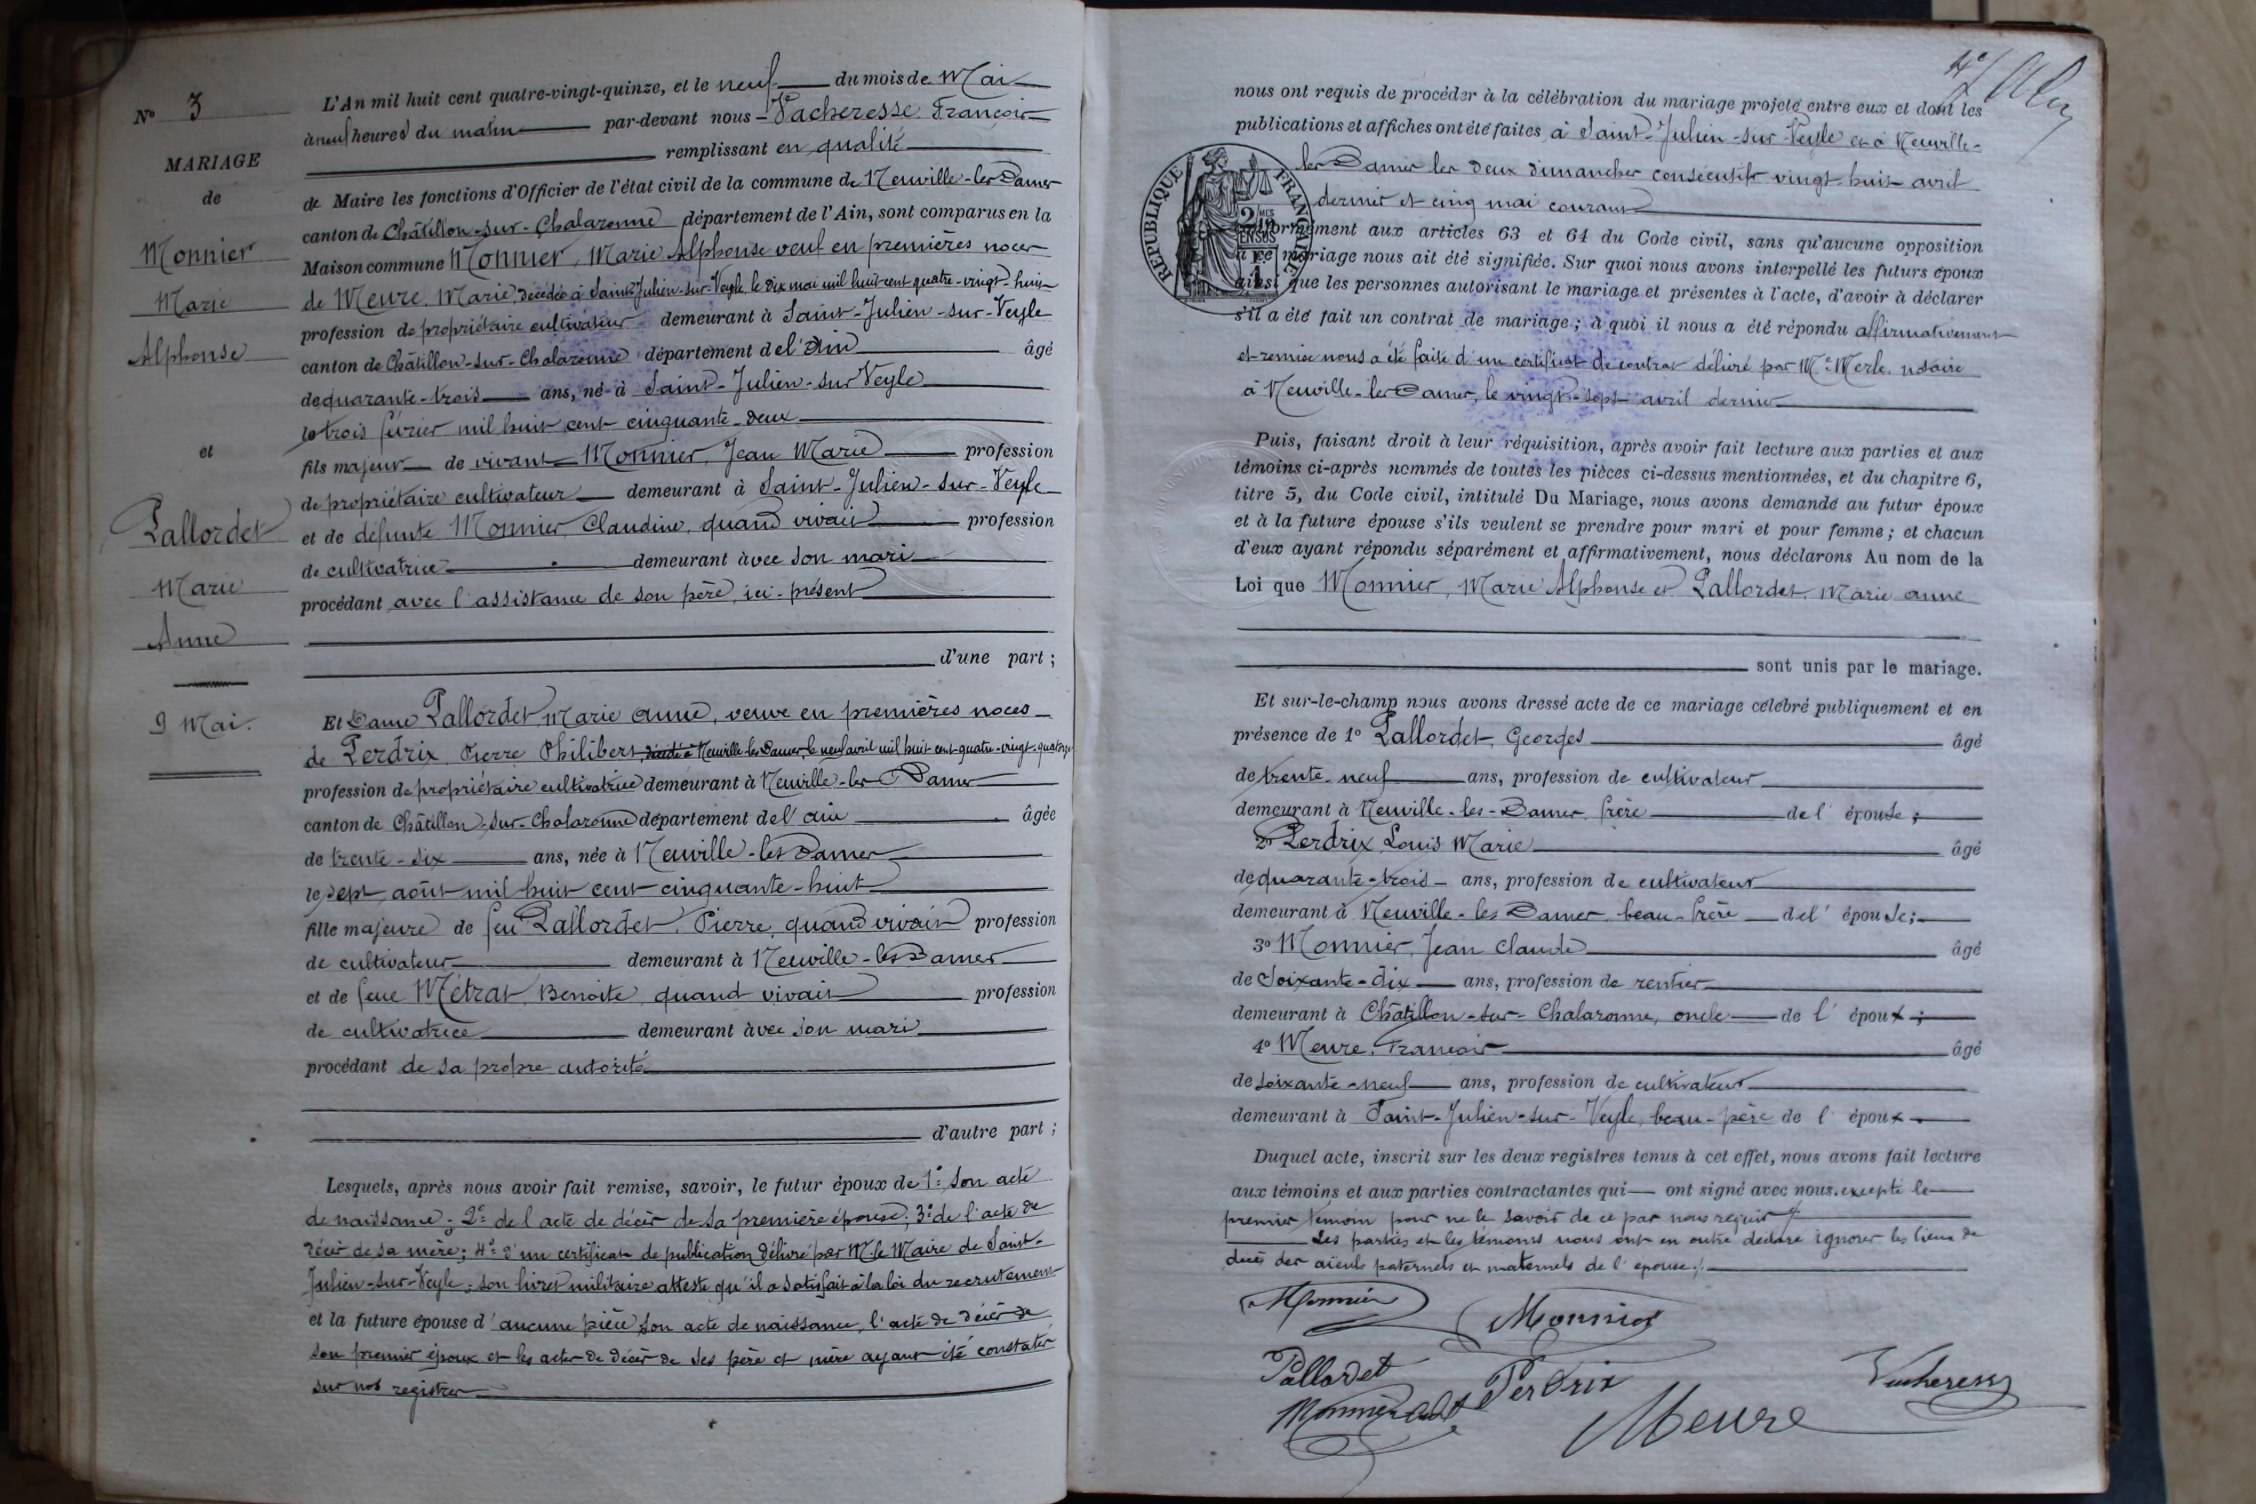 N° 3
MARIAGE
de
Monnier
Marie
Alphonse
et
Pallordet
Marie
Anne
9 Mai.
L'An mil huit cent quatre-vingt-quinze, et le neuf du mois de Mai
à neuf heures du matin par-devant nous Vacheresse François
remplissant en qualité
de Maire les fonctions d'Officier de l'état civil de la commune de Neuville-les-Dames
canton de Châtillon-sur-Chalaronne département de l'Ain, sont comparus en la
Maison commune Monnier, Marie Alphonse veuf en premières noces
de Meure, Marie, décédée à Saint-Julien-sur-Veyle le dix mai mil huit cent quatre-vingt-huit
profession de propriétaire cultivateur demeurant à Saint-Julien-sur-Veyle
canton de Châtillon-sur-Chalaronne département de l'Ain âgé
de quarante-trois ans, né à Saint-Julien-sur Veyle
le trois février mil huit cent cinquante-deux
fils majeur de vivant Monnier, Jean Marie profession
de propriétaire cultivateur demeurant à Saint-Julien-sur-Veyle
et de défunte Monnier, Claudine, quand vivait profession
de cultivatrice demeurant avec son mari
procédant avec l'assistance de son père, ici-présent
d'une part ;
Et Dame Pallordet, Marie Anne, veuve en premières noces
de Perdrix, Pierre Philibert, décédé à Neuville-les-Dames, le neuf avril mil huit cent quatre-vingt-quatorze
profession de propriétaire cultivatrice demeurant à Neuville-les-Dames
canton de Châtillon-sur-Chalaronne département de l'ain âgée
de trente-six ans, née à Neuville-les-Dames
le sept août mil huit cent cinquante-huit
fille majeure de feu Pallordet, Pierre, quand vivait profession
de cultivateur demeurant à Neuville-les-Dames
et de feue Métrat, Benoite, quand vivait profession
de cultivatrice demeurant avec son mari
procédant de sa propre autorité
d'autre part ;
Lesquels, après nous avoir fait remise, savoir, le futur époux de 1° son acte
de naissance; 2° de l'acte de décès de sa première épouse; 3° de l'acte de
décès de sa mère; 4° d'un certificat de publication délivré par M. le Maire de Saint-
Julien-sur-Veyle; son livret militaire atteste qu'il a satisfait à la loi du recrutement
et la future épouse d'aucune pièce, son acte de naissance, l'acte de décès de
son premier époux et les actes de décès de ses père et mère ayant été constatés
sur nos registres
nous ont requis de procéder à la célébration du mariage projeté entre eux et dont les
publications et affiches ont été faites, à Saint-Julien-sur-Veyle et à Neuville-
les Dames les deux dimanches consécutifs vingt-huit avril
dernier et cinq mai courant
RÉPUBLIQUE FRANÇAISE
conformément aux articles 63 et 64 du Code civil, sans qu'aucune opposition
à ce mariage nous ait été signifiée. Sur quoi nous avons interpellé les futurs époux
ainsi que les personnes autorisant le mariage et présentes à l'acte, d'avoir à déclarer
s'il a été fait un contrat de mariage ; à quoi il nous a été répondu affirmativement
et remise nous a été faite d'un certificat de contrat délivré par Me Merle, notaire
à Neuville-les-Dames, le vingt-sept avril dernier
Puis, faisant droit à leur réquisition, après avoir fait lecture aux parties et aux
témoins ci-après nommés de toutes les pièces ci-dessus mentionnées, et du chapitre 6,
titre 5, du Code civil, intitulé Du Mariage, nous avons demandé au futur époux
et à la future épouse s'ils veulent se prendre pour mari et pour femme ; et chacun
d'eux ayant répondu séparément et affirmativement, nous déclarons Au nom de la
Loi que Monnier, Marie Alphonse et Pallordet, Marie anne
sont unis par le mariage.
Et sur-le-champ nous avons dressé acte de ce mariage célébré publiquement et en
présence de 1° Pallordet, Georges âgé
de trente-neuf ans, profession de cultivateur
demeurant à Neuville-les-Dames, frère de l'épouse ;
2° Perdrix Louis Marie âgé
de quarante-trois ans, profession de cultivateur
demeurant à Neuville-les Dames, beau-frère de l'épouse ;
3° Monnier, Jean Claude âgé
de soixante-dix ans, profession de rentier
demeurant à Châtillon-sur-Chalaronne, oncle de l'époux ;
4° Meure, François âgé
de soixante-neuf ans, profession de cultivateur
demeurant à Saint-Julien-sur-Veyle, beau-père de l'époux
Duquel acte, inscrit sur les deux registres tenus à cet effet, nous avons fait lecture
aux témoins et aux parties contractantes qui ont signé avec nous, excepté le
premier témoin pour ne le savoir de ce par nous requis
Les parties et les témoins nous ont en outre déclaré ignorer les lieux de
décès des aïeuls paternels et maternels de l'épouse
Monnier Monnier
Pallordet Perdrix Vacheresse
Monnier Meure